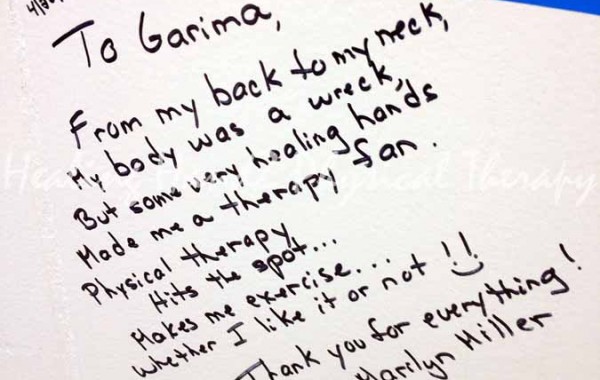 To Garima,
From my back to my neck,
My body was a wreck,
But some very healing hands
Made me a therapy fan.
Physical therapy
Hits the spot...
Makes me exercise...
whether I like it or not !!
Thank you for everything!
Marilyn Miller
Physical Therapy